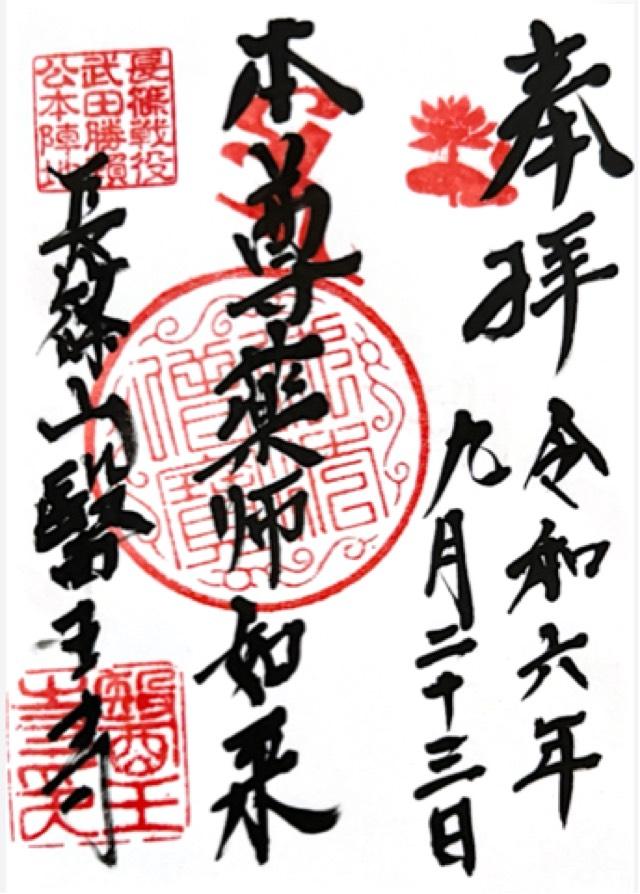 奉拝
令和六年
九月二十三日
本尊薬師如来
長篠戰役
武田勝頼
公本陣地
長篠山醫王寺